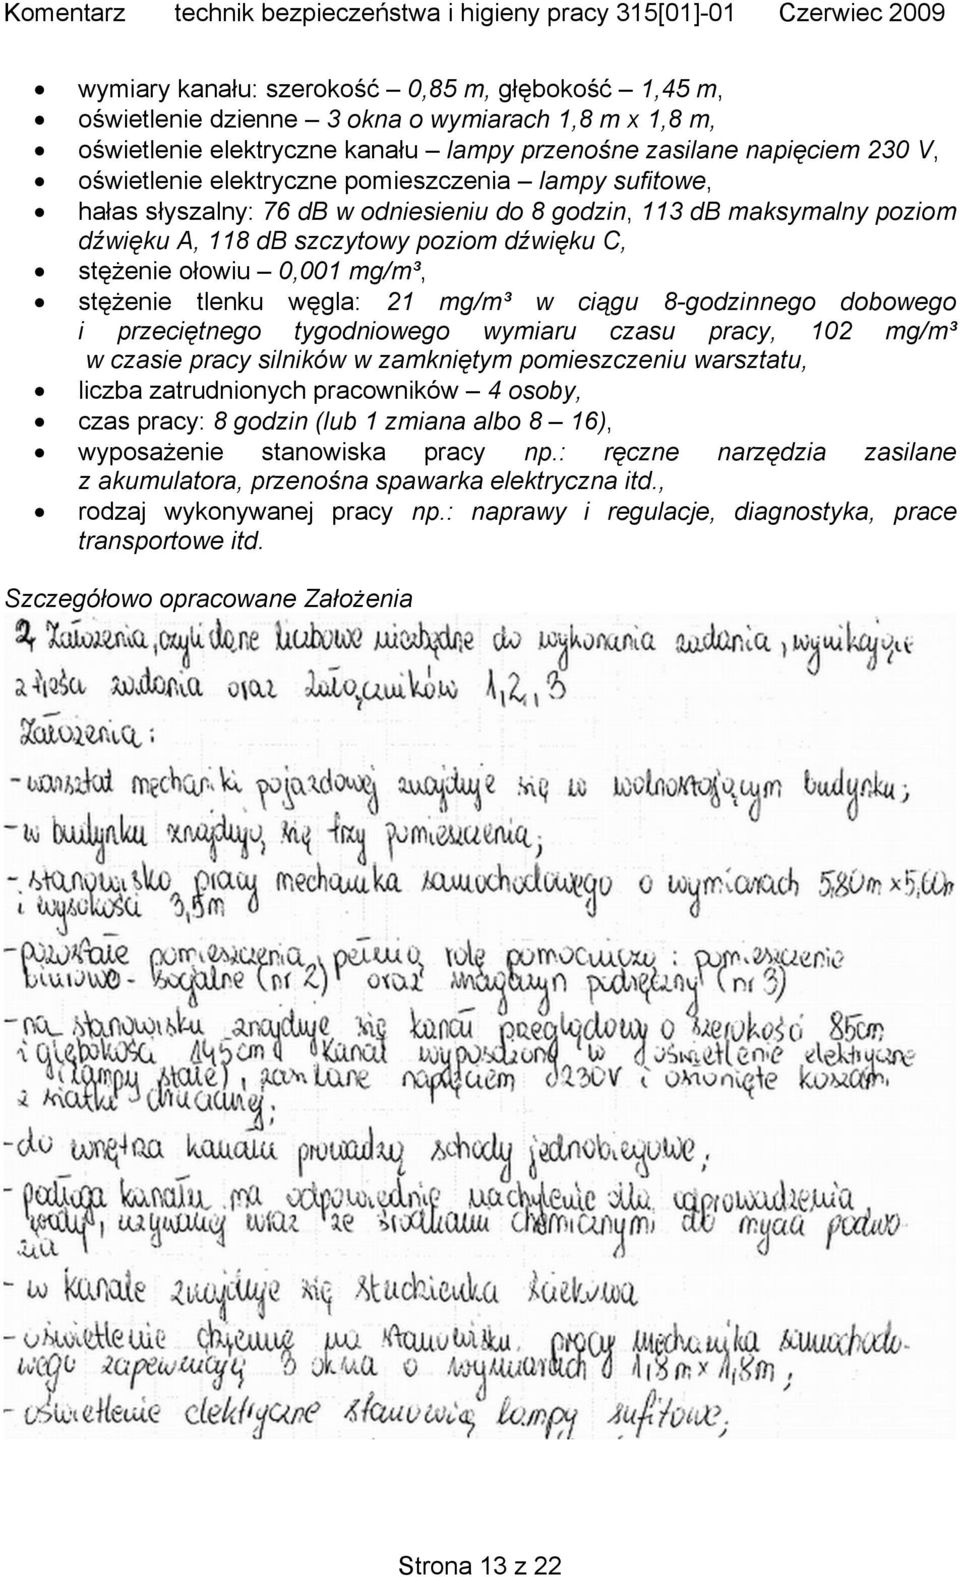 Komentarz technik bezpieczeństwa i higieny pracy 315[01]-01 Czerwiec 2009
• wymiary kanału: szerokość – 0,85 m, głębokość – 1,45 m,
• oświetlenie dzienne – 3 okna o wymiarach 1,8 m x 1,8 m,
• oświetlenie elektryczne kanału – lampy przenośne zasilane napięciem 230 V,
• oświetlenie elektryczne pomieszczenia – lampy sufitowe,
• hałas słyszalny: 76 dB w odniesieniu do 8 godzin, 113 dB maksymalny poziom
dźwięku A, 118 dB szczytowy poziom dźwięku C,
• stężenie ołowiu – 0,001 mg/m³,
• stężenie tlenku węgla: 21 mg/m³ w ciągu 8-godzinnego dobowego
i przeciętnego tygodniowego wymiaru czasu pracy, 102 mg/m³
w czasie pracy silników w zamkniętym pomieszczeniu warsztatu,
• liczba zatrudnionych pracowników – 4 osoby,
• czas pracy: 8 godzin (lub 1 zmiana albo 8 – 16),
• wyposażenie stanowiska pracy np.: ręczne narzędzia zasilane
z akumulatora, przenośna spawarka elektryczna itd.,
• rodzaj wykonywanej pracy np.: naprawy i regulacje, diagnostyka, prace
transportowe itd.
Szczegółowo opracowane Założenia
2, Założenia, czyli dane liczbowe niezbędne do wykonania zadania, wynikające
z treści zadania oraz załączników 1, 2, 3
Założenia:
- warsztat mechaniki pojazdowej znajduje się w wolnostojącym budynku;
- w budynku znajdują się trzy pomieszczenia;
- stanowisko pracy mechanika samochodowego o wymiarach 5,80m x 5,60m
i wysokości 3,5m
- pozostałe pomieszczenia pełnią rolę pomocniczą: pomieszczenie
biurowo-socjalne (nr 2) oraz magazyn podręczny (nr 3)
- na stanowisku znajduje się kanał przeglądowy o szerokości 85cm
i głębokości 145cm. Kanał wyposażony w oświetlenie elektryczne
(lampy stałe), zasilane napięciem 230V i osłonięte koszami
z siatki drucianej;
- do wnętrza kanału prowadzą schody jednobiegowe;
- podłoga kanału ma odpowiednie nachylenie dla odprowadzenia
wody, używanej wraz ze środkami chemicznymi do mycia podwo-
zia
- w kanale znajduje się studzienka ściekowa
- oświetlenie dzienne na stanowisku pracy mechanika samochodo-
wego zapewniają 3 okna o wymiarach 1,8m x 1,8m;
- oświetlenie elektryczne stanowią lampy sufitowe;
Strona 13 z 22